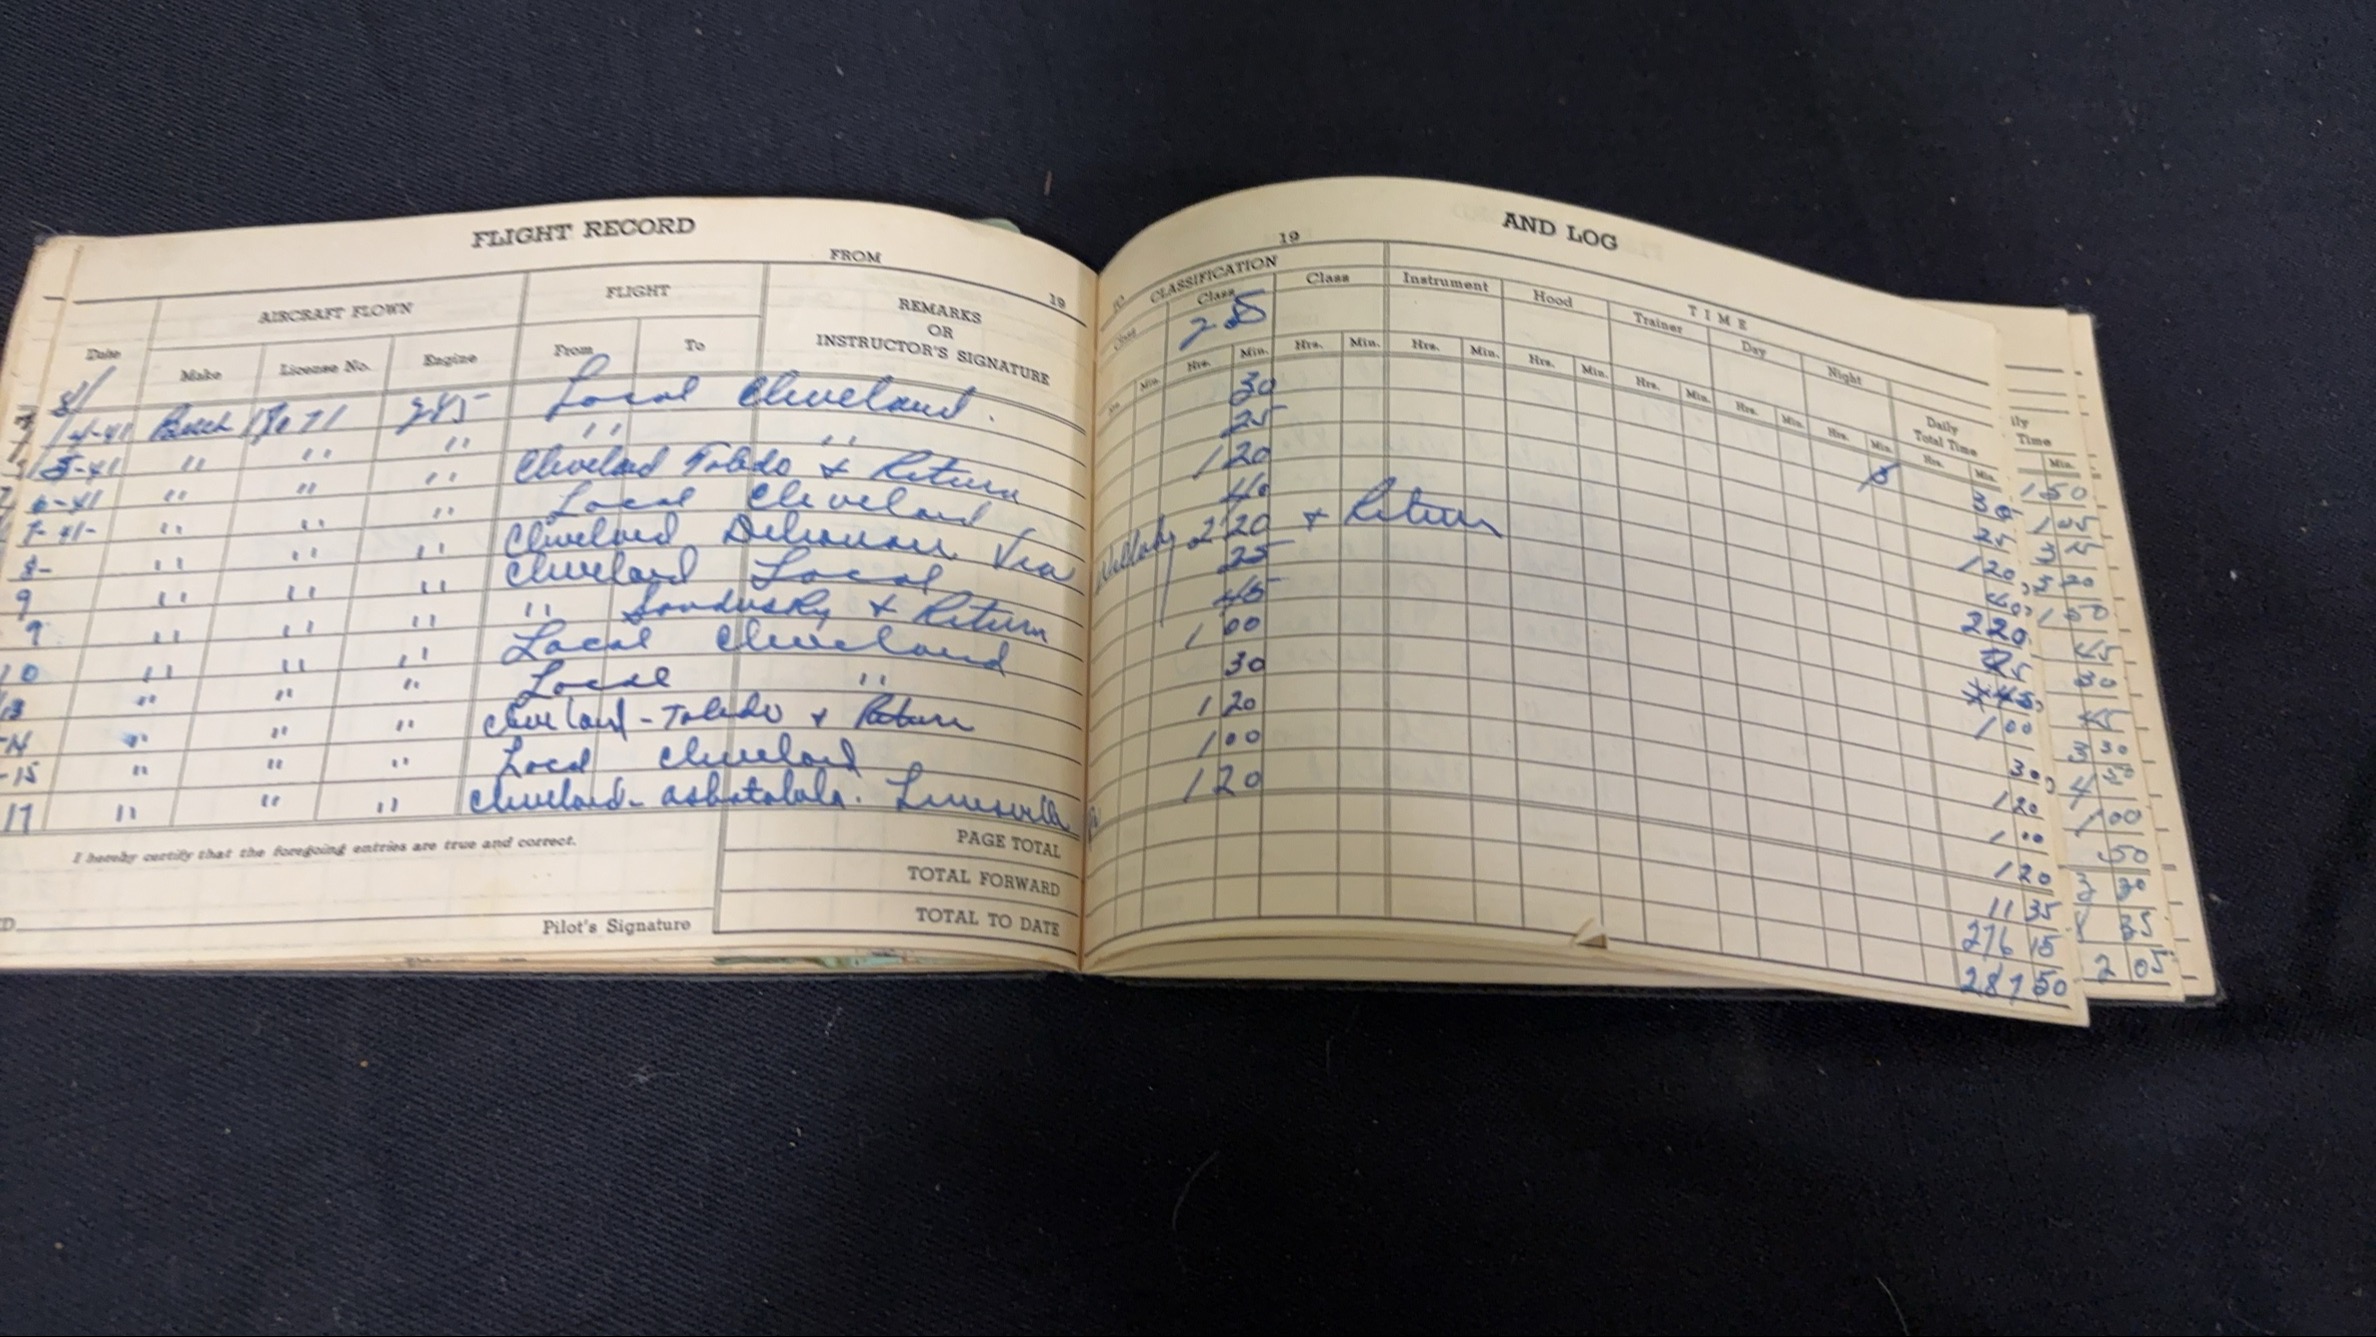 FLIGHT RECORD
FROM 19
Date AIRCRAFT FLOWN FLIGHT REMARKS OR INSTRUCTOR'S SIGNATURE
Make License No. Engine From To
4-41 Beech 285 Local Cleveland.
5-41 " " " " "
6-41 " " " Cleveland Toledo & Return
7-41- " " " Local Cleveland
8- " " " Cleveland Via
9 " " " Cleveland Local
9 " " " " Sandusky & Return
10 " " " Local Cleveland
13 " " " Local "
14 " " " Cleveland - Toledo & Return
15 " " " Local Cleveland
17 " " " Cleveland - Ashtabula. Linesville
I hereby certify that the foregoing entries are true and correct.
Pilot's Signature
PAGE TOTAL
TOTAL FORWARD
TOTAL TO DATE
AND LOG
TO 19
CLASSIFICATION TIME
Class Class Class Instrument Hood Trainer Day Night Daily Total Time
Min. Hrs. Min. Hrs. Min. Hrs. Min. Hrs. Min. Hrs. Min. Hrs. Min. Hrs. Min. Hrs. Min.
30 30
25 25
1 20 1 20
40 40
2 20 & Return 2 20
25 25
45 45
1 00 1 00
30 30
1 20 1 20
1 00 1 00
1 20 1 20
11 35
276 15
287 50
ily
Time
Min.
1 50
3 20
1 50
45
30
45
3 30
4 50
1 00
50
3 30
35
2 05